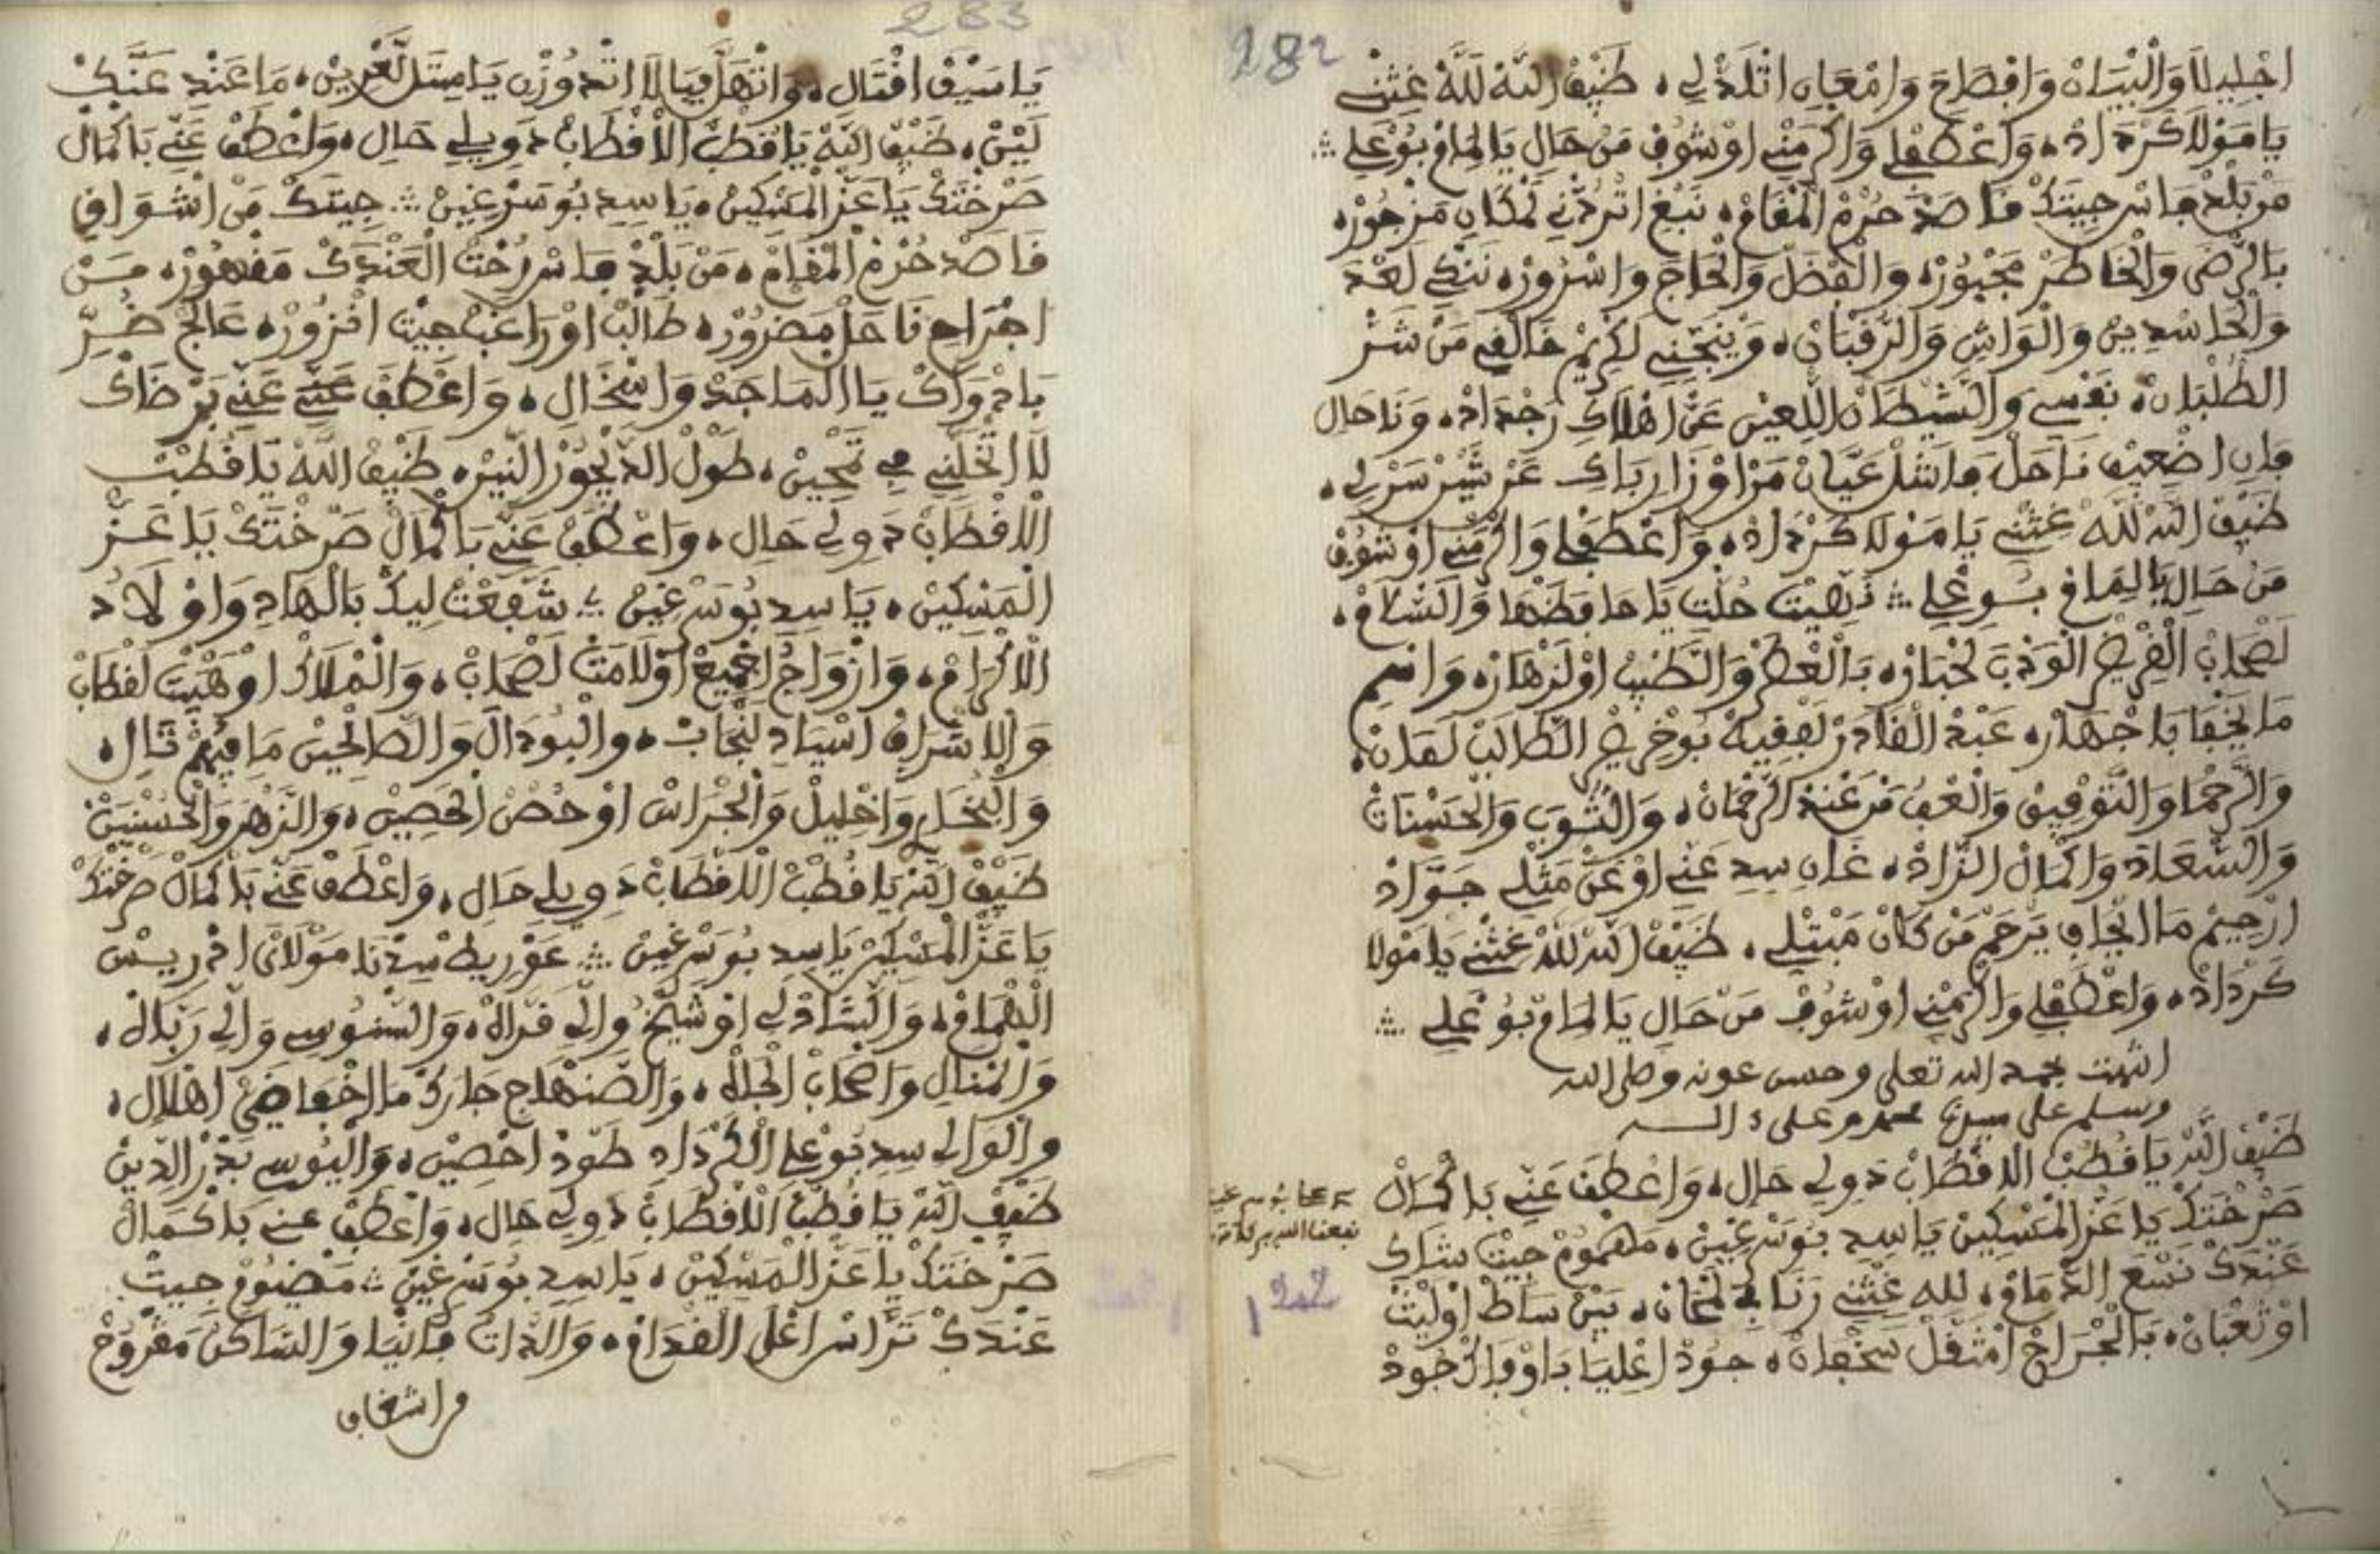 282
اجْلِيلَا وَالْبْيَانْ وَافْصَاحَ وَامْعَانِ اتْلَذْلِي، ضَيْفْ اللَّهْ لِلَّهْ غِثْنِي
يَا مَوْلَا كَرْدَادْ، وَاعْطَفْلِي وَاكْرَمْنِي اوْشُوفْ مَنْ حَالِ يَا لِمَامْ بُوعْلِي
مَنْ بَلْدْ فَاسْ جِيتَكْ قَاصَدْ حُرْمْ الْمْقَامْ، نَبْغِ اتْرُدْنِي لَمْكَانِ مَزْجُورْ،
بَالرْضَى وَالْخَاطَرْ مَجْبُورْ، وَالْفْضَلْ وَالْحَاجَ وَاسْرُورْ، نَنْكِي لَعْدَ
وَالْحَاسْدِينْ وَالْوَاشِ وَالرَّقْبَانْ، وَيْنَجِّنِي لَكْرِيمْ خَالْقِي مَنْ شَرّْ
الطُّلْبَانْ، نَفْسِي وَالشِّيطَانْ اللَّعِينْ عَنْ اهْلَاكِ رَجْدَادْ، وَنَا حَالِ
فَانِ اضْعِيفْ نَاحَلْ مَا نَشْلْ عَيَّانْ مَنْ اوْزَارِ بَاكِ عَنْ شَيْنْ سَرْلِي،
ضَيْفْ اللَّهْ لِلَّهْ غِثْنِي يَا مَوْلَا كَرْدَادْ، وَاعْطَفْلِي وَاكْرَمْنِي اوْشُوفْ
مَنْ حَالِ يَا لِمَامْ بُوعْلِي نَهِيتْ حُلْتِ يَا حَافَظْهَا وَالسْلَامْ،
لَصْحَابْ الْقْرِيضْ الْوَذْبَ لَخْبَارْ، بَالْعْطَرْ وَالطِّيبْ اوْلَزْهَارْ، وَاسْمِ
مَا يَخْفَا بَاجْهَارْ، عَبْدْ الْقَادَرْ لَفْقِيهْ بُوخْرِيصْ الطَّالَبْ لَمَانْ،
وَالرَّحْمَا وَالتَّوْفِيقْ وَالْعْفُ مَنْ عَنْدْ الرَّحْمَانْ، وَالثُّوَبْ وَالْحَسْنَاتْ
وَالسْعَادَ وَاكْمَالْ الزَّادْ، غَانِ سِيدِ عَنِّي اوْعَنْ مَثْلِي جَوَّادْ
ارْحِيمْ مَا الْجَافِي يَرْحَمْ مَنْ كَانْ مَبْتْلِي، ضَيْفْ اللَّهْ لِلَّهْ غِثْنِي يَا مَوْلَا
كَرْدَادْ، وَاعْطَفْلِي وَاكْرَمْنِي اوْشُوفْ مَنْ حَالِ يَا لِمَامْ بُوعْلِي
انتهت بحمد الله تعلى وحسن عونه وصلى الله
وسلم على سيدنا محمد وعلى ءاله
ضَيْفْ اللَّهْ يَا قُطْبْ الَاقْطَابْ دَوِي لِي حَالِ، وَاعْطَفْ عَنِّي بَاكْمَالْ
صَرْخْتَكْ يَا عَزّْ الْمَسْكِينْ يَا سِيدِ بُوسَرْغِينْ، مَهْمُومْ جِيتْ شَاكِ
عَنْدَكْ نَسْعَ الذْمَامْ، لله غِثْنِي رَنَا فِي لَمْحَانْ، بَيْنْ سَاطْ اوْلِيثْ
اوْثَعْبَانْ، بَالْجْرَاحْ امْثَقَّلْ سَخْفَانْ، جُودْ اعْلِيَا دَاوْ فَاكْ جُودْ
بوسرغين
نفعنا الله ببركاته
283
يَا سَيْفْ اقْتَالِ، وَاتْهَلَّ فِيَا لَا اتْدُوزْنِ يَا مِتَلْ لَعْرِينْ، مَا عَنْدِ عَنَّكْ
لَيْنْ، ضَيْفْ اللَّهْ يَا قُطْبْ الَاقْطَابْ دَوِي لِي حَالِ، وَاعْطَفْ عَنِّي بَاكْمَالْ
صَرْخْتَكْ يَا عَزّْ الْمَسْكِينْ، يَا سِيدِ بُوسَرْغِينْ جِيتَكْ مَنْ اشْوَاقِ
قَاصَدْ حُرْمْ الْمْقَامْ، مَنْ بَلْدْ فَاسْ رُحْتْ الْعَنْدَكْ مَقْهُورْ، مَنْ
اجْرَاحِ نَاحَلْ مَضْرُورْ، طَالَبْ اوْرَاغَبْ جِيتْ انْزُورْ، عَالَجْ ضُرِّ
بَادْوَاكْ يَا الْمَاجَدْ وَاسْخَالِ، وَاعْطَفْ عَنِّي عَنِّي بَرْضَاكْ
لَا اتْخَلِّنِي فِي تَمْحِينْ، طَوْلْ الدّْيْجُورْ الَنِينْ، ضَيْفْ اللَّهْ يَا قُطْبْ
الَاقْطَابْ دَوِي لِي حَالِ، وَاعْطَفْ عَنِّي بَاكْمَالْ صَرْخْتَكْ يَا عَزّْ
الْمَسْكِينْ، يَا سِيدِ بُوسَرْغِينْ شَفَّعْتْ لِيكْ بَالْهَادِ وَاوْلَادُ
الَاكْرَامْ، وَازْوَاجُ اجْمِيعْ اوْلَامَتْ لَصْحَابْ، وَالْمْلَاكْ اوْهَيْبْتْ لَقْطَابْ
وَالَاشْرَافْ اسْيَادِ لَنْجَابْ، وَالْبُودَالَ وَالصَّالْحِينْ مَا فِيهُمْ قَالِ،
وَالْبُخَارِ وَاخْلِيلْ وَالْجْرَاسْ اوْحُصْنْ الْحَصِينْ، وَالزَّهْرَ وَالْحُسْنِينْ
ضَيْفْ اللَّهْ يَا قُطْبْ الَاقْطَابْ دَوِي لِي حَالِ، وَاعْطَفْ عَنِّي بَاكْمَالْ صَرْخْتَكْ
يَا عَزّْ الْمَسْكِينْ يَا سِيدِ بُوسَرْغِينْ عَوْرِيطْ سِيدْنَا مَوْلَانَ ادْرِيسْ
الْهْمَامْ، وَالْشَاذْلِي اوْشَيْخُ وَالِي فَزَّالَهْ، وَالسْنُوسِي وَالِي رَبَّالَهْ،
وَالْمْنَالِ وَاصْحَابْ الْجْلَالَهْ، وَالصَّنْهَاجِ جَارَكْ مَا اخْفَا ضَيّْ اهْلَالِ،
وَالْوَالِي سِيدِ بُوعْلِي الْكَرْدَادِ طَوْدْ احْصِينْ، وَالْيُوسِي بَدْرْ الدِّينْ
ضَيْفْ اللَّهْ يَا قُطْبْ الَاقْطَابْ دَوِي لِي حَالِ، وَاعْطَفْ عَنِي بَاكْمَالْ
صَرْخْتَكْ يَا عَزّْ الْمَسْكِينْ، يَا سِيدِ بُوسَرْغِينْ مَضْيُومْ جِيتْ
عَنْدَكْ تَرَّاسْ اعْلَى الْقْدَامْ، وَالذَّاتْ فَانْيَا وَالسَاكَنْ مَقْرُوحْ